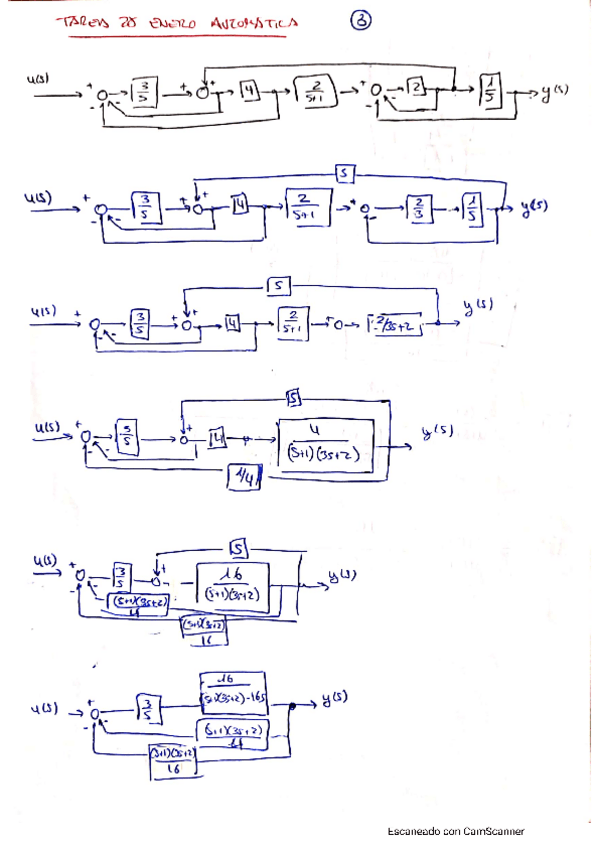 TAREA 28 ENERO AUTOMÁTICA 3
u(s) + - - 3/s + + 4 2/s+1 + - 2 1/s y(s)
s
u(s) + - - 3/s + + 4 2/s+1 + - 2/3 1/s y(s)
s
u(s) + - - 3/s + + 4 2/s+1 + 2/3s+2 y(s)
s
u(s) + - - 3/s + 4 4/(s+1)(3s+2) y(s)
1/4
s
u(s) + - - 3/s + 16/(s+1)(3s+2) y(s)
(s+1)(3s+2)/4
(s+1)(3s+2)/16
u(s) + - - 3/s 16/(s+1)(3s+2)-16s y(s)
(s+1)(3s+2)/4
(s+1)(3s+2)/16
Escaneado con CamScanner